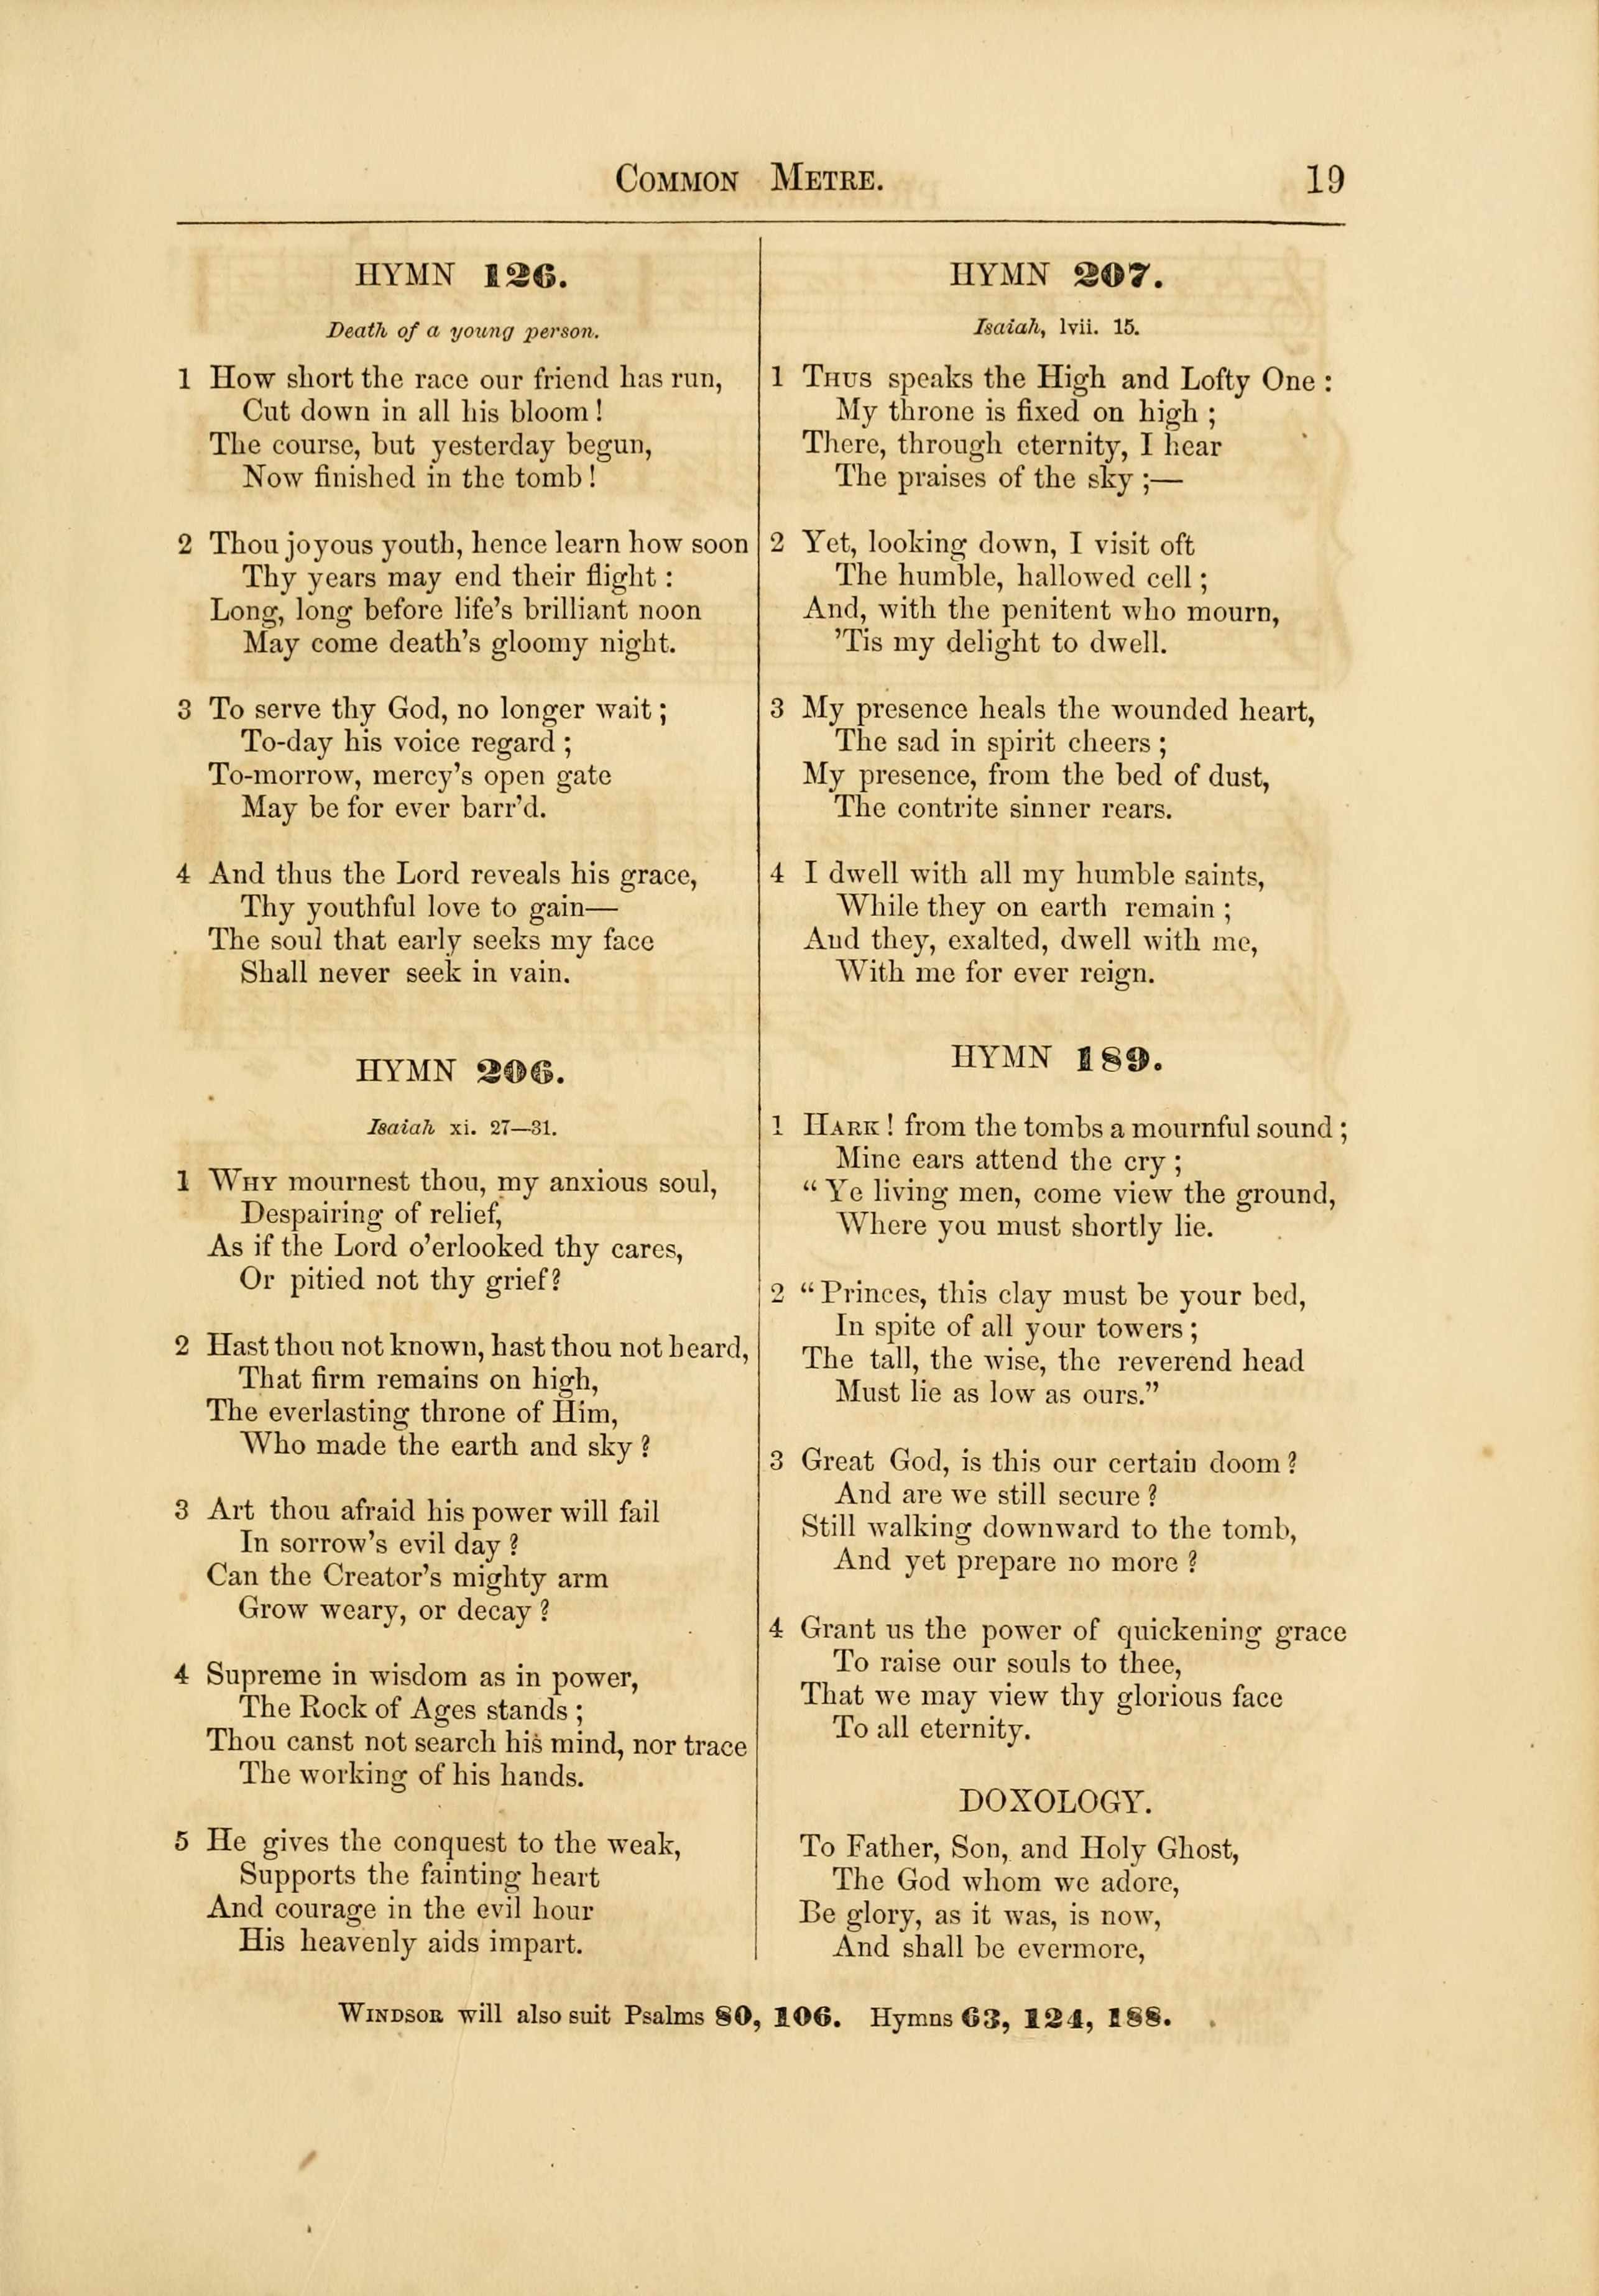 COMMON METRE. 19
HYMN 126.
Death of a young person.
1 How short the race our friend has run,
Cut down in all his bloom!
The course, but yesterday begun,
Now finished in the tomb!
2 Thou joyous youth, hence learn how soon
Thy years may end their flight:
Long, long before life's brilliant noon
May come death's gloomy night.
3 To serve thy God, no longer wait;
To-day his voice regard;
To-morrow, mercy's open gate
May be for ever barr'd.
4 And thus the Lord reveals his grace,
Thy youthful love to gain—
The soul that early seeks my face
Shall never seek in vain.
HYMN 206.
Isaiah xi. 27—31.
1 WHY mournest thou, my anxious soul,
Despairing of relief,
As if the Lord o'erlooked thy cares,
Or pitied not thy grief?
2 Hast thou not known, hast thou not heard,
That firm remains on high,
The everlasting throne of Him,
Who made the earth and sky?
3 Art thou afraid his power will fail
In sorrow's evil day?
Can the Creator's mighty arm
Grow weary, or decay?
4 Supreme in wisdom as in power,
The Rock of Ages stands;
Thou canst not search his mind, nor trace
The working of his hands.
5 He gives the conquest to the weak,
Supports the fainting heart
And courage in the evil hour
His heavenly aids impart.
HYMN 207.
Isaiah, lvii. 15.
1 THUS speaks the High and Lofty One:
My throne is fixed on high;
There, through eternity, I hear
The praises of the sky;—
2 Yet, looking down, I visit oft
The humble, hallowed cell;
And, with the penitent who mourn,
'Tis my delight to dwell.
3 My presence heals the wounded heart,
The sad in spirit cheers;
My presence, from the bed of dust,
The contrite sinner rears.
4 I dwell with all my humble saints,
While they on earth remain;
And they, exalted, dwell with me,
With me for ever reign.
HYMN 189.
1 HARK! from the tombs a mournful sound;
Mine ears attend the cry;
"Ye living men, come view the ground,
Where you must shortly lie.
2 "Princes, this clay must be your bed,
In spite of all your towers;
The tall, the wise, the reverend head
Must lie as low as ours."
3 Great God, is this our certain doom?
And are we still secure?
Still walking downward to the tomb,
And yet prepare no more?
4 Grant us the power of quickening grace
To raise our souls to thee,
That we may view thy glorious face
To all eternity.
DOXOLOGY.
To Father, Son, and Holy Ghost,
The God whom we adore,
Be glory, as it was, is now,
And shall be evermore,
WINDSOR will also suit Psalms 80, 106. Hymns 63, 124, 188.